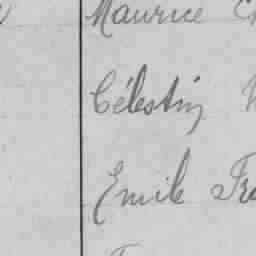 Maurice
Célestin
Emile